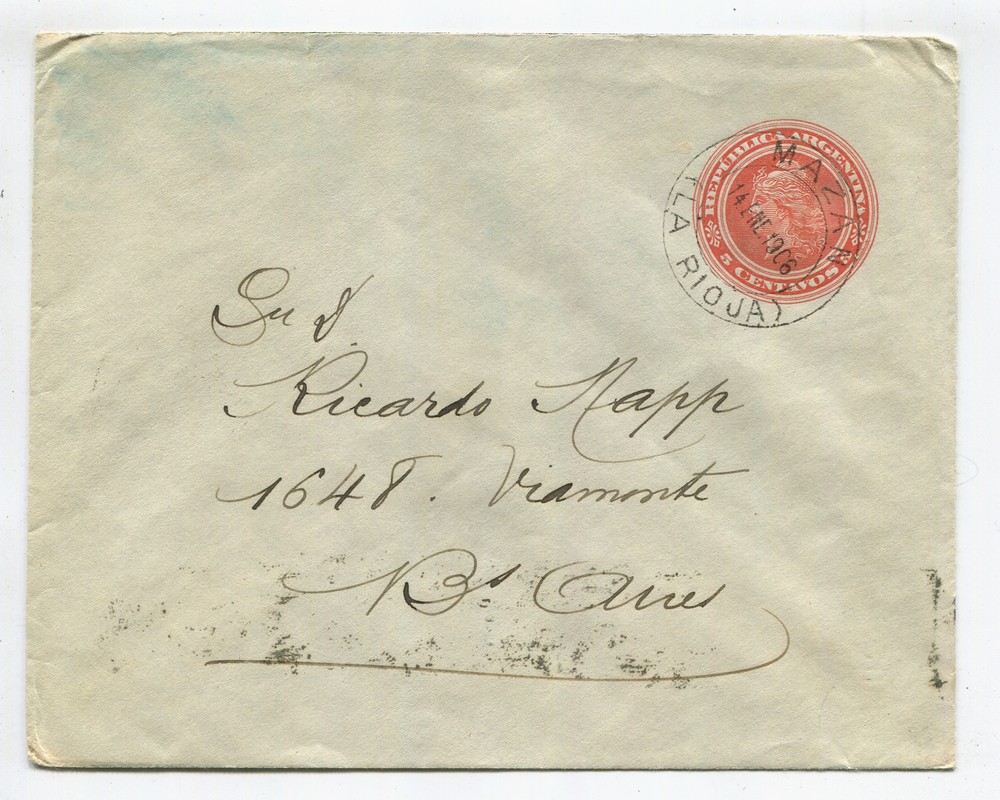 REPÚBLICA ARGENTINA
5 CENTAVOS
MAZAN
14 ENE 1906
(LA RIOJA)
Sr D.
Ricardo Napp
1648. Viamonte
Bs Aires